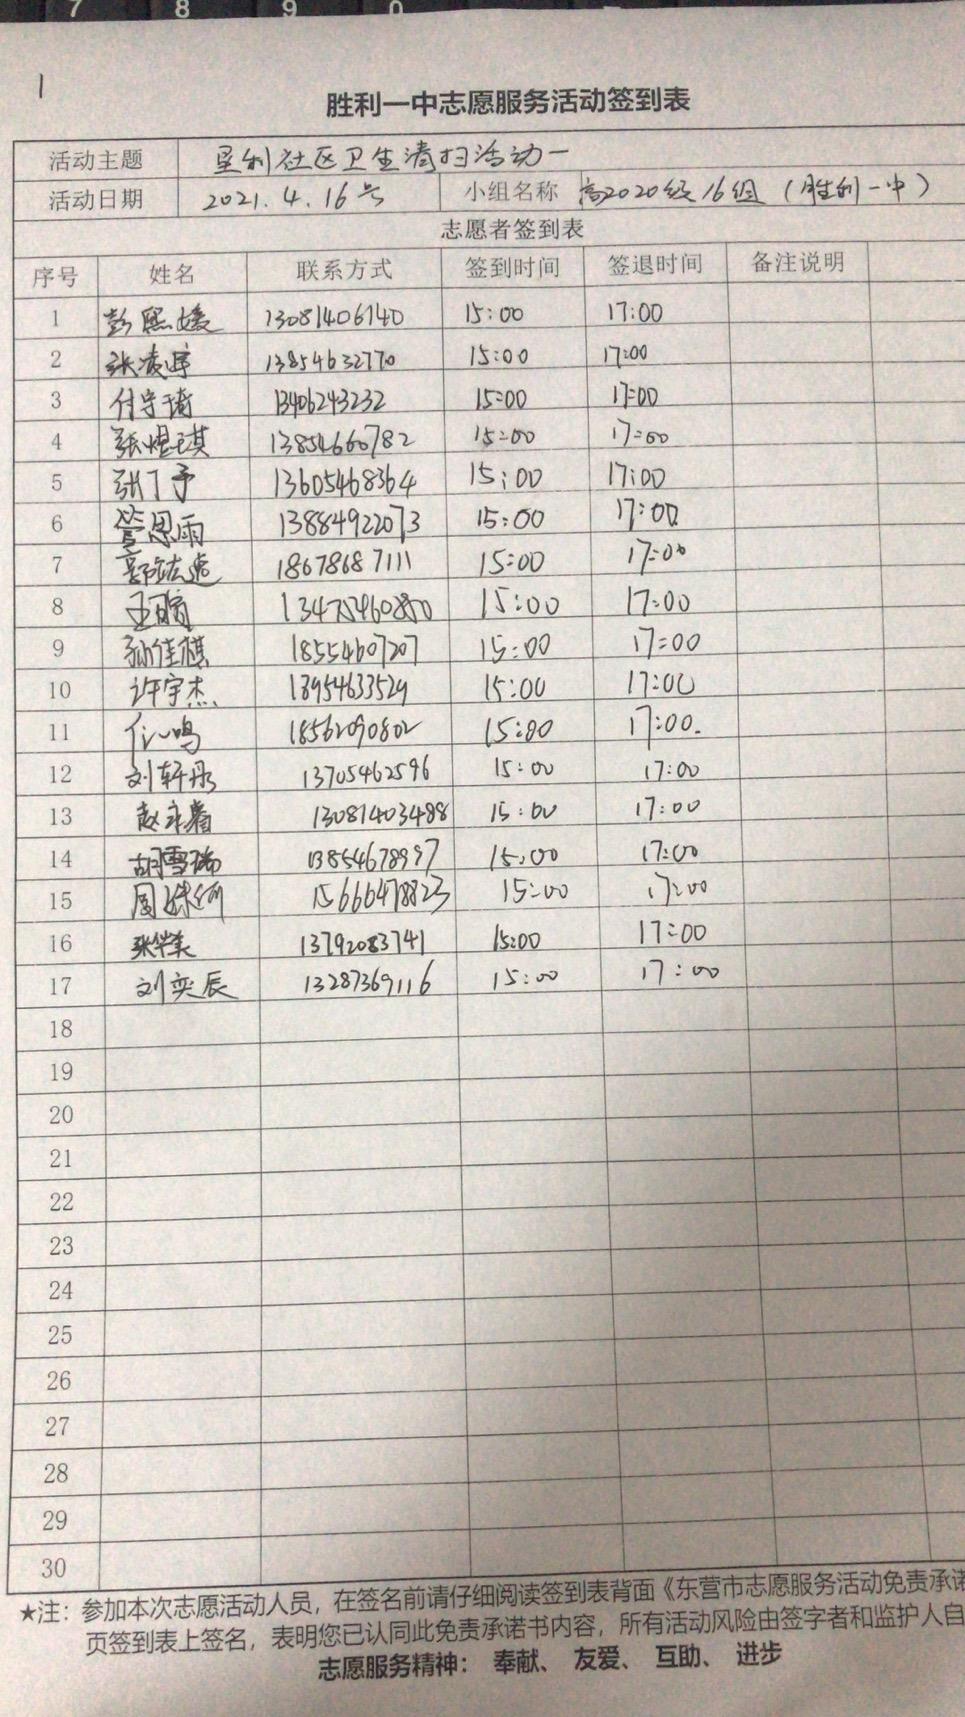 7 8 9 0
1
胜利一中志愿服务活动签到表
活动主题 垦利社区卫生清扫活动一
活动日期 2021.4.16号 小组名称 高2020级16组（胜利一中）
志愿者签到表
序号 姓名 联系方式 签到时间 签退时间 备注说明
1 彭熙媛 13081406140 15:00 17:00
2 张凌宇 13854632770 15:00 17:00
3 付宇琦 13406243232 15:00 17:00
4 张煜琪 13854660782 15:00 17:00
5 张丁予 13605468364 15:00 17:00
6 管恩雨 13884922073 15:00 17:00
7 18678687111 15:00 17:00
8 13475460280 15:00 17:00
9 孙佳祺 18554607207 15:00 17:00
10 许宇杰 18954633529 15:00 17:00
11 18562090802 15:00 17:00.
12 刘轩彤 13705462596 15:00 17:00
13 13081403488 15:00 17:00
14 胡雪瑞 13854678997 15:00 17:00
15 15666478823 15:00 17:00
16 13792083741 15:00 17:00
17 刘奕辰 13287369116 15:00 17:00
18
19
20
21
22
23
24
25
26
27
28
29
30
★注：参加本次志愿活动人员，在签名前请仔细阅读签到表背面《东营市志愿服务活动免责承诺
页签到表上签名，表明您已认同此免责承诺书内容，所有活动风险由签字者和监护人自
志愿服务精神： 奉献、 友爱、 互助、 进步